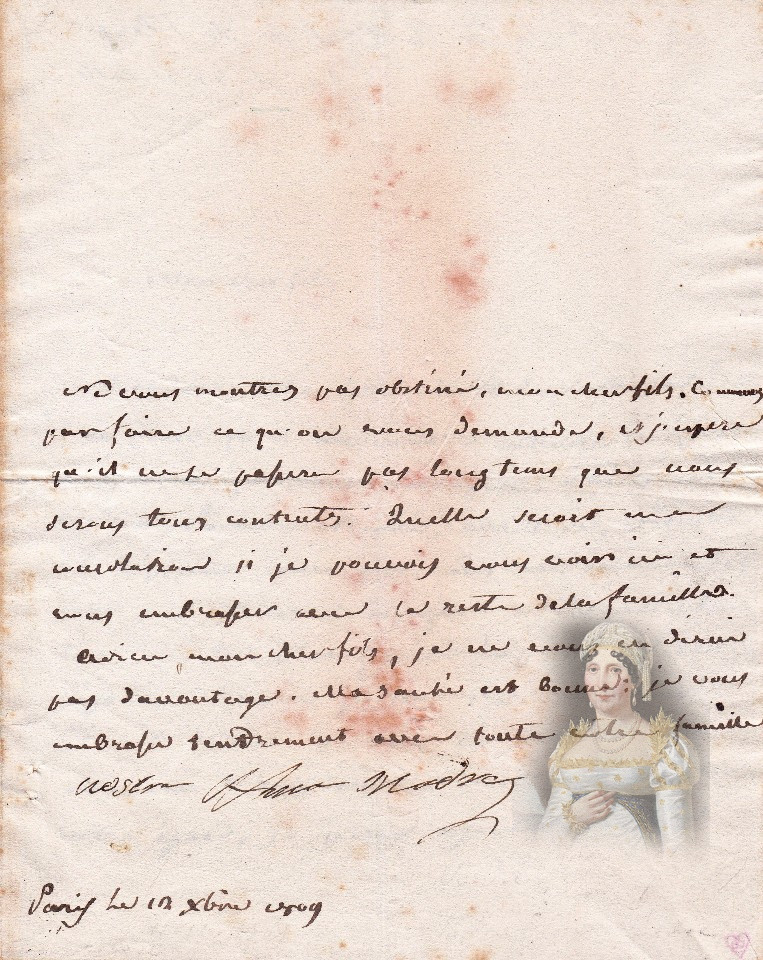 Ne vous montrez pas obstiné, mon cher fils. Commencez
par faire ce qu'on vous demande, et j'espere
qu'il ne se passera pas longtems que nous
serons tous contents. Quelle seroit ma
consolation si je pouvois vous voir ici et
vous embrasser avec le reste de la famille.
Adieu, mon cher fils, je ne vous en dirai
pas davantage. Ma santé est bonne: je vous
embrasse tendrement avec toute votre famille
vostra Madre
Paris le 12 Xbre 1809